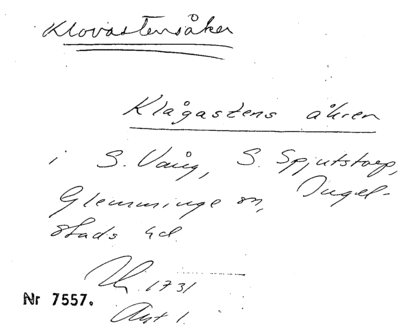 Klovastensåker
Klågastens åkren
i S. Vång, S. Spjutstorp,
Glemminge sn, Ingel-
stads hd.
1731
Nr 7557.
Akt 1.